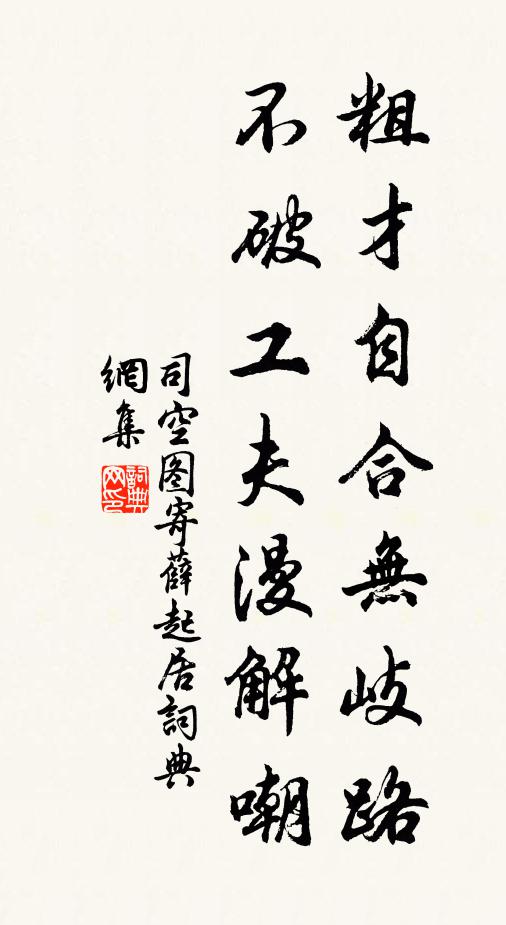 粗才自合無歧路
不破工夫漫解嘲
司空图寄薛起居詞典
網集
詞典
网印